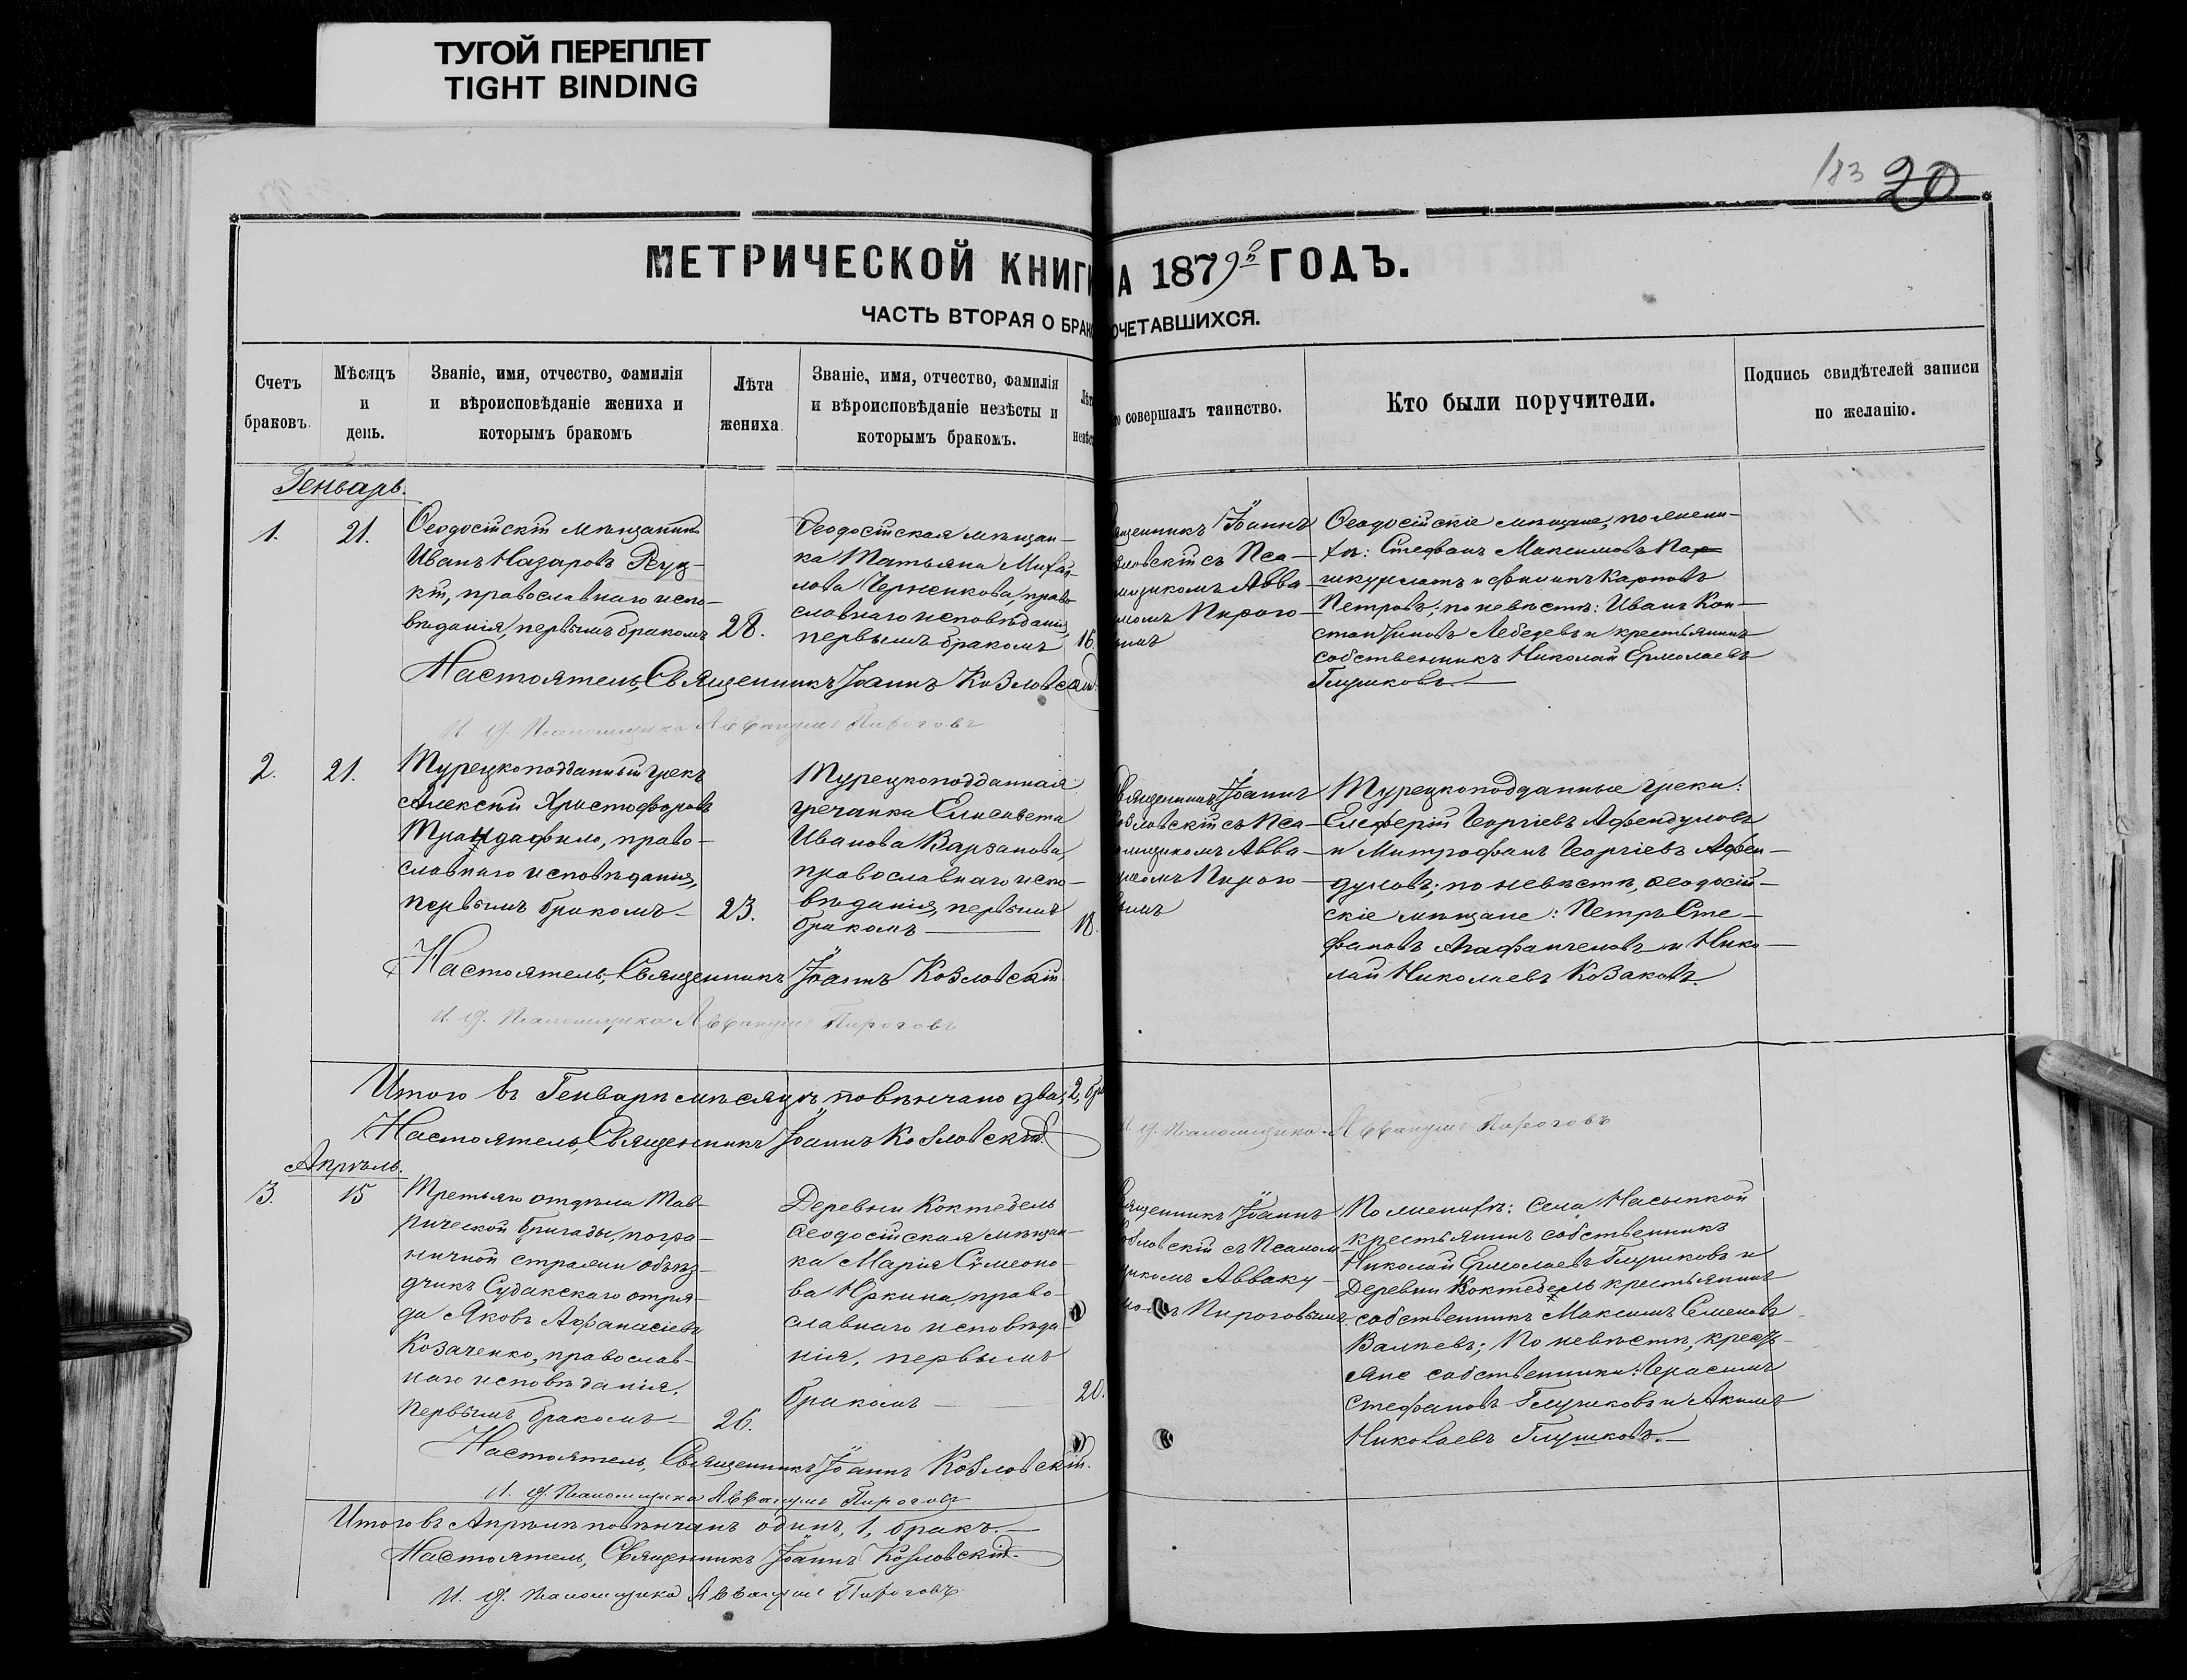 ТУГОЙ ПЕРЕПЛЕТ
TIGHT BINDING
183 20
МЕТРИЧЕСКОЙ КНИГИ НА 1879й ГОДЪ.
ЧАСТЬ ВТОРАЯ О БРАКОСОЧЕТАВШИХСЯ.
Счетъ
браковъ.
Мѣсяцъ
и
день.
Званіе, имя, отчество, фамилія
и вѣроисповѣданіе жениха и
которымъ бракомъ
Лѣта
жениха.
Званіе, имя, отчество, фамилія
и вѣроисповѣданіе невѣсты и
которымъ бракомъ.
Лѣт
невѣс
о совершалъ таинство.
Кто были поручители.
Подпись свидѣтелей записи
по желанію.
Генварь.
1.
21.
Ѳеодосійскій мѣщанинъ
Иванъ Назаровъ Руд-
кій, православнаго испо-
вѣданія, первымъ бракомъ
28.
Ѳеодосійская мѣщан-
ка Татьяна Михай-
лова Черненкова, право-
славнаго исповѣданія,
первымъ бракомъ
16.
ященникъ Іоаннъ
зловскій съ Пса-
мщикомъ Авва-
умомъ Пирого-
вымъ
Ѳеодосійскіе мѣщане, по жени-
хѣ: Стефанъ Максимовъ
и Филипъ Карповъ
Петровъ; по невѣстѣ: Иванъ Кон-
стантиновъ Лебедевъ и крестьянинъ
собственникъ Николай Ермолаевъ
Глушковъ.
Настоятель, Священникъ Іоаннъ Козловскій.
И. д. Псаломщика Аввакумъ Пироговъ
2.
21.
Турецкоподданный грекъ
Алексѣй Христофоровъ
Трандафило, право-
славнаго исповѣданія,
первымъ бракомъ
23.
Турецкоподданная
гречанка Елисавета
Иванова Варзанова,
православнаго испо-
вѣданія, первымъ
бракомъ
18.
Священникъ Іоаннъ
озловскій съ Пса-
омщикомъ Авва-
умомъ Пирого-
вымъ
Турецкоподданные греки:
Елеферій Георгіевъ Афендуловъ
и Митрофанъ Георгіевъ Афен-
дуловъ; по невѣстѣ, Ѳеодосій-
скіе мѣщане: Петръ Сте-
фановъ Агафангеловъ и Нико-
лай Николаевъ Козаковъ.
Настоятель, Священникъ Іоаннъ Козловскій.
И. д. Псаломщика Аввакумъ Пироговъ
Итого въ Генварѣ мѣсяцѣ повѣнчано два, 2, бра
Настоятель, Священникъ Іоаннъ Козловскій.
И. д. Псаломщика Аввакумъ Пироговъ
Апрѣль.
3.
15
Третьяго отдѣла Тав-
рической бригады, погра-
ничной стражи объѣз-
дчикъ Судакскаго отря-
да Яковъ Афанасіевъ
Козаченко, православ-
наго исповѣданія,
первымъ бракомъ
26.
Деревни Коктебель
Ѳеодосійская мѣщан-
ка Марія Сѵмеоно-
ва Юркина, право-
славнаго исповѣда-
нія, первымъ
бракомъ
20.
вященникъ Іоаннъ
озловскій съ Псалом-
щикомъ Авваку-
момъ Пироговымъ.
По женихѣ: Села Насыпкой
крестьянинъ собственникъ
Николай Ермолаевъ Глушковъ и
Деревни Коктебель крестьянинъ
собственникъ Максимъ Семеновъ
Валѣевъ; По невѣстѣ, кресть-
яне собственники: Герасимъ
Стефановъ Глушковъ и Акимъ
Николаевъ Глушковъ.
Настоятель, Священникъ Іоаннъ Козловскій.
И. д. Псаломщика Аввакумъ Пироговъ
Итого въ Апрѣлѣ повѣнчанъ одинъ, 1, бракъ.
Настоятель, Священникъ Іоаннъ Козловскій.
И. д. Псаломщика Аввакумъ Пироговъ